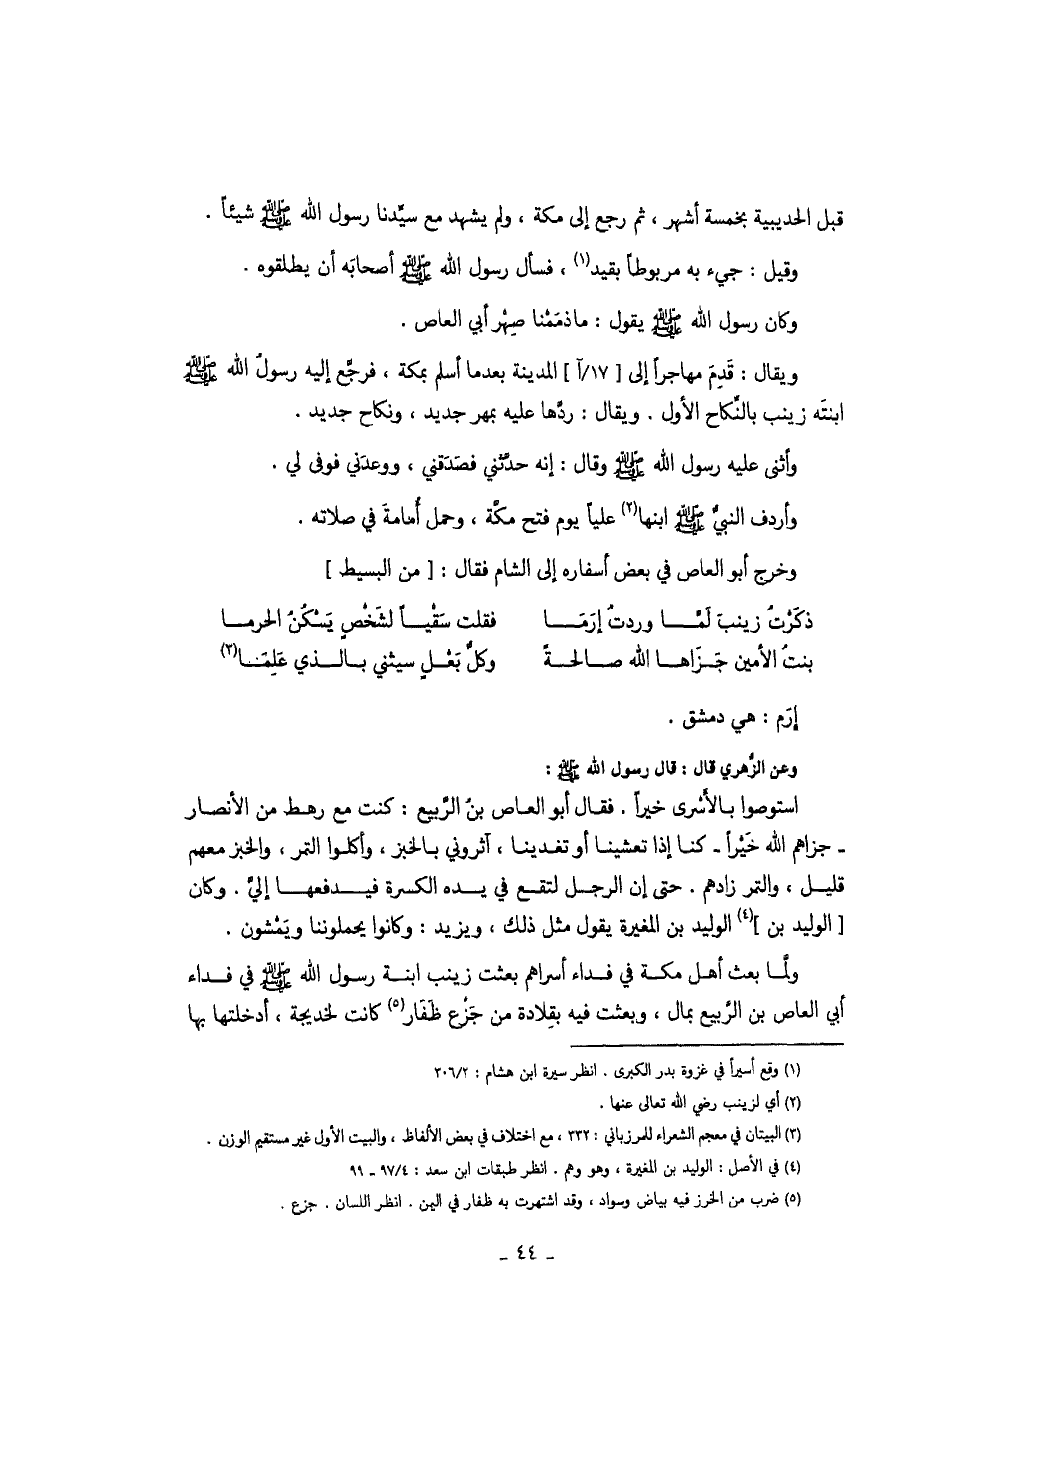 قبل الحديبية بخمسة أشهر ، ثم رجع إلى مكة ، ولم يشهد مع سيِّدنا رسول الله ﷺ شيئاً .
وقيل : جيء به مربوطاً بقيد(١) ، فسأل رسول الله ﷺ أصحابَه أن يطلقوه .
وكان رسول الله ﷺ يقول : ماذمَمْنا صِهْر أبي العاص .
ويقال : قَدِمَ مهاجراً إلى [ ١٧/آ ] المدينة بعدما أسلم بمكة ، فرجَّع إليه رسولُ الله ﷺ
ابنتَه زينب بالنَّكاح الأول . ويقال : ردَّها عليه بمهر جديد ، ونكاح جديد .
وأثنى عليه رسول الله ﷺ وقال : إنه حدَّثني فصَدَقني ، ووعدَني فوفى لي .
وأردف النبيُّ ﷺ ابنها(٢) علياً يوم فتح مكَّة ، وحمل أُمامةَ في صلاته .
وخرج أبو العاص في بعض أسفاره إلى الشام فقال : [ من البسيط ]
ذكَرْتُ زينبَ لَمَّـا وردتُ إرَمَـا فقلت سَقْيـاً لشَخْصٍ يَسْكُنُ الحرمـا
بنتُ الأمين جَـزَاهـا الله صـالحـةً وكلُّ بَعْـلٍ سيثني بـالـذي عَلِمَـا(٣)
إرَم : هي دمشق .
وعن الزُّهري قال : قال رسول الله ﷺ :
استوصوا بـالأَسْرى خيراً . فقـال أبو العـاص بنُ الرَّبيع : كنت مع رهـط من الأنصـار
ـ جزاهم الله خَيْراً ـ كنـا إذا تعشينـا أو تغـدينـا ، آثروني بـالخبز ، وأكلـوا التمر ، والخبز معهم
قليـل ، والتمر زادهم . حتى إن الرجـل لتقـع في يـده الكسرة فيـدفعهـا إليَّ . وكان
[ الوليد بن ](٤) الوليد بن المغيرة يقول مثل ذلك ، ويزيد : وكانوا يحملوننا ويَمْشون .
ولمَّا بعث أهـل مكـة في فـداء أسراهم بعثت زينب ابنـة رسول الله ﷺ في فـداء
أبي العاص بن الرَّبيع بمال ، وبعثت فيه بقِلادة من جَزْع ظَفَار(٥) كانت لخديجة ، أدخلتها بها
(١) وقع أسيراً في غزوة بدر الكبرى . انظر سيرة ابن هشام : ٣٠٦/٢
(٢) أي لزينب رضي الله تعالى عنها .
(٣) البيتان في معجم الشعراء للمرزباني : ٣٣٢ ، مع اختلاف في بعض الألفاظ ، والبيت الأول غير مستقيم الوزن .
(٤) في الأصل : الوليد بن المغيرة ، وهو وهم . انظر طبقات ابن سعد : ٩٧/٤ ـ ٩٩
(٥) ضرب من الخرز فيه بياض وسواد ، وقد اشتهرت به ظفار في اليمن . انظر اللسان . جزع .
ـ ٤٤ ـ